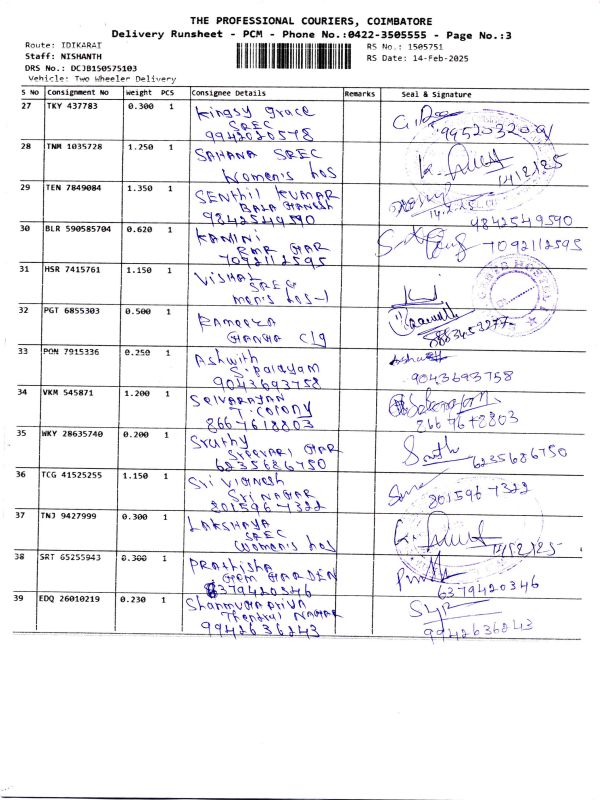 THE PROFESSIONAL COURIERS, COIMBATORE
Delivery Runsheet - PCM - Phone No.:0422-3505555 - Page No.:3
Route: IDIKARAI
RS No.: 1505751
Staff: NISHANTH
RS Date: 14-Feb-2025
DRS No.: DCJB150575103
Vehicle: Two Wheeler Delivery
S No Consignment No Weight PCS Consignee Details Remarks Seal & Signature
27 TKY 437783 0.300 1 Kingsy grace
SREC
9942020578
9952033209
28 TNM 1035728 1.250 1 SAHANA SREC
Women's hos
14/2/25
29 TEN 7849084 1.350 1 SENTHIL KUMAR
BALA GANESH
9842549590
14.2.25
9842549590
30 BLR 590585704 0.620 1 KANINI
RMR GAR
7092112595
7092112595
31 HSR 7415761 1.150 1 VISHAL
SREC
men's hos-1
32 PGT 6855303 0.500 1 RAMEEZA
GANGA clg
8883453277
33 PON 7915336 0.250 1 Ashwith
S.palayam
9043693758
Ashwith
9043693758
34 VKM 545871 1.200 1 SELVARAYAN
T.COLONY
8667618803
866 76 18803
35 WKY 28635740 0.200 1 Sruthy
SREEVARI GAR
6235686750
Sruthi
6235686750
36 TCG 41525255 1.150 1 Sri Vignesh
Sri NAGAR
8015967322
8015967322
37 TNJ 9427999 0.300 1 LAKSHAYA
SREC
Women's hos
14/2/25
38 SRT 65255943 0.300 1 PRathisha
GEM GARDEN
6379420346
6379420346
39 EDQ 26010219 0.230 1 ShanmugaPriya
Thendral NAGAR
9942636243
9942636243